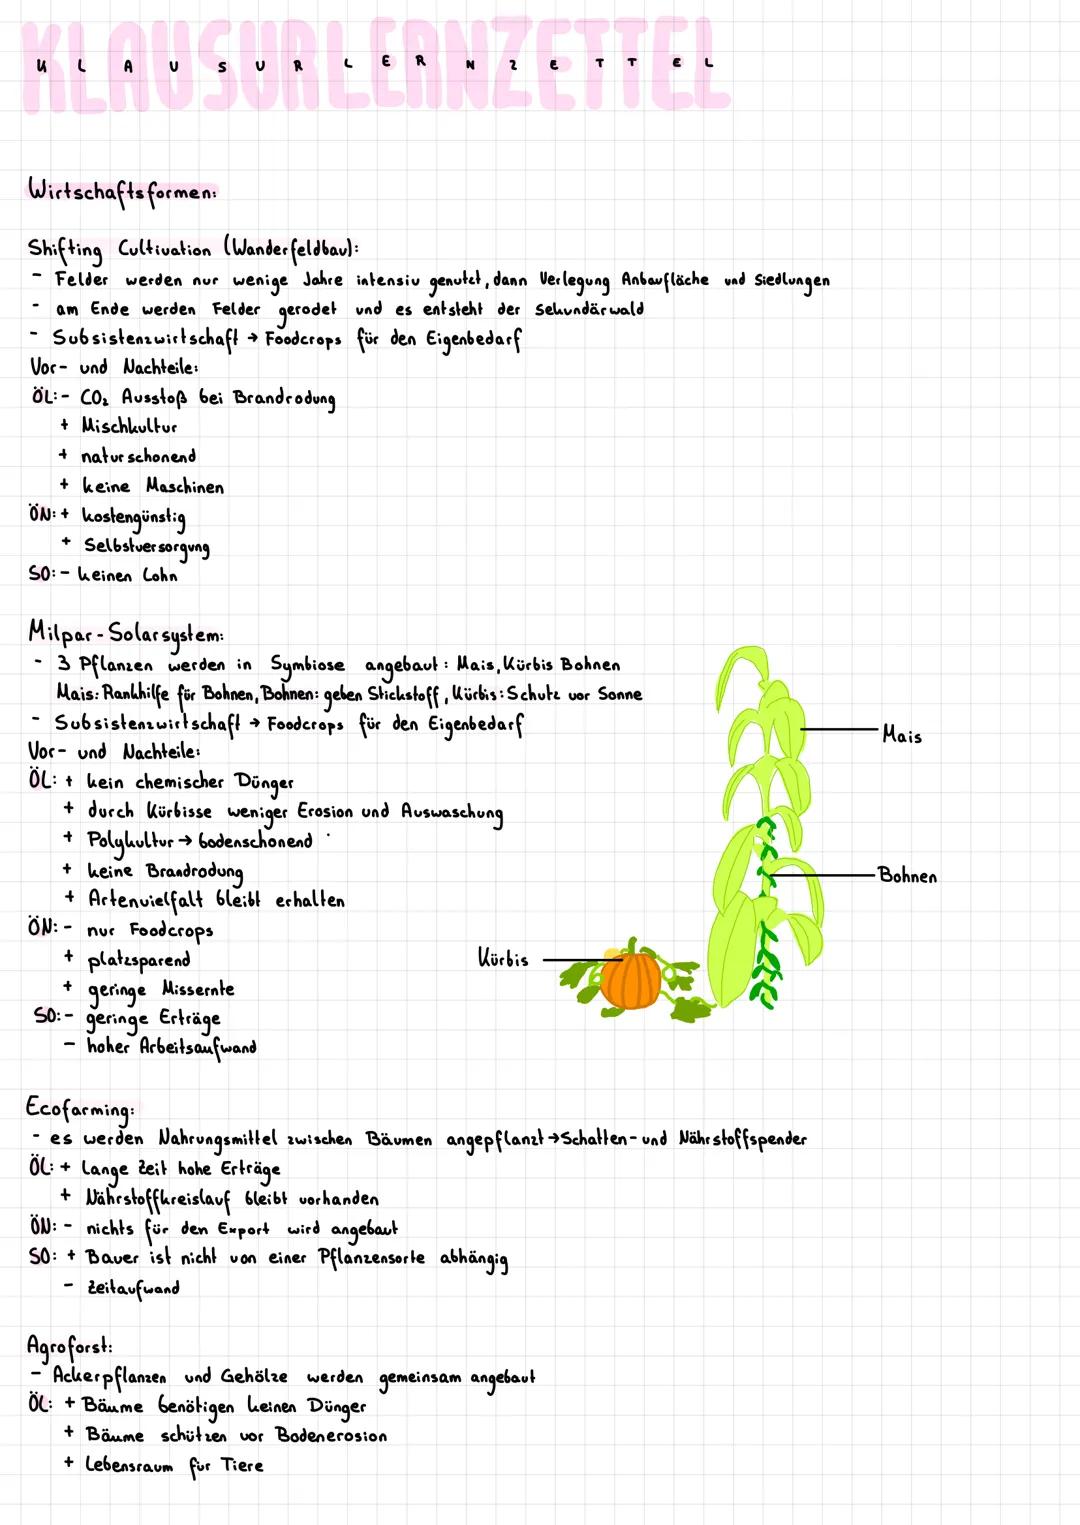 KLAUSURLERNZETTEL
KLAUSURLERNZETTEL
Wirtschaftsformen:
Shifting Cultivation (Wanderfeldbau):
- Felder werden nur wenige Jahre intensiv genutzt, dann Verlegung Anbaufläche und Siedlungen
- am Ende werden Felder gerodet und es entsteht der Sekundärwald
- Subsistenzwirtschaft → Foodcrops für den Eigenbedarf
Vor- und Nachteile:
ÖL: - CO₂ Ausstoß bei Brandrodung
+ Mischkultur
+ naturschonend
+ keine Maschinen
ÖN: + kostengünstig
+ Selbstversorgung
SO: - keinen Lohn
Milpar-Solarsystem:
- 3 Pflanzen werden in Symbiose angebaut: Mais, Kürbis Bohnen
Mais: Rankhilfe für Bohnen, Bohnen: geben Stickstoff, Kürbis: Schutz vor Sonne
- Subsistenzwirtschaft → Foodcrops für den Eigenbedarf
Vor- und Nachteile:
ÖL: + kein chemischer Dünger
+ durch Kürbisse weniger Erosion und Auswaschung
+ Polykultur → bodenschonend
+ keine Brandrodung
+ Artenvielfalt bleibt erhalten
ÖN: - nur Foodcrops
+ platzsparend
+ geringe Missernte
SO: - geringe Erträge
- hoher Arbeitsaufwand
Mais
Bohnen
Kürbis
Ecofarming:
- es werden Nahrungsmittel zwischen Bäumen angepflanzt → Schatten- und Nährstoffspender
ÖL: + Lange Zeit hohe Erträge
+ Nährstoffkreislauf bleibt vorhanden
ÖN: - nichts für den Export wird angebaut
SO: + Bauer ist nicht von einer Pflanzensorte abhängig
- Zeitaufwand
Agroforst:
- Ackerpflanzen und Gehölze werden gemeinsam angebaut
ÖL: + Bäume benötigen keinen Dünger
+ Bäume schützen vor Bodenerosion
+ Lebensraum für Tiere